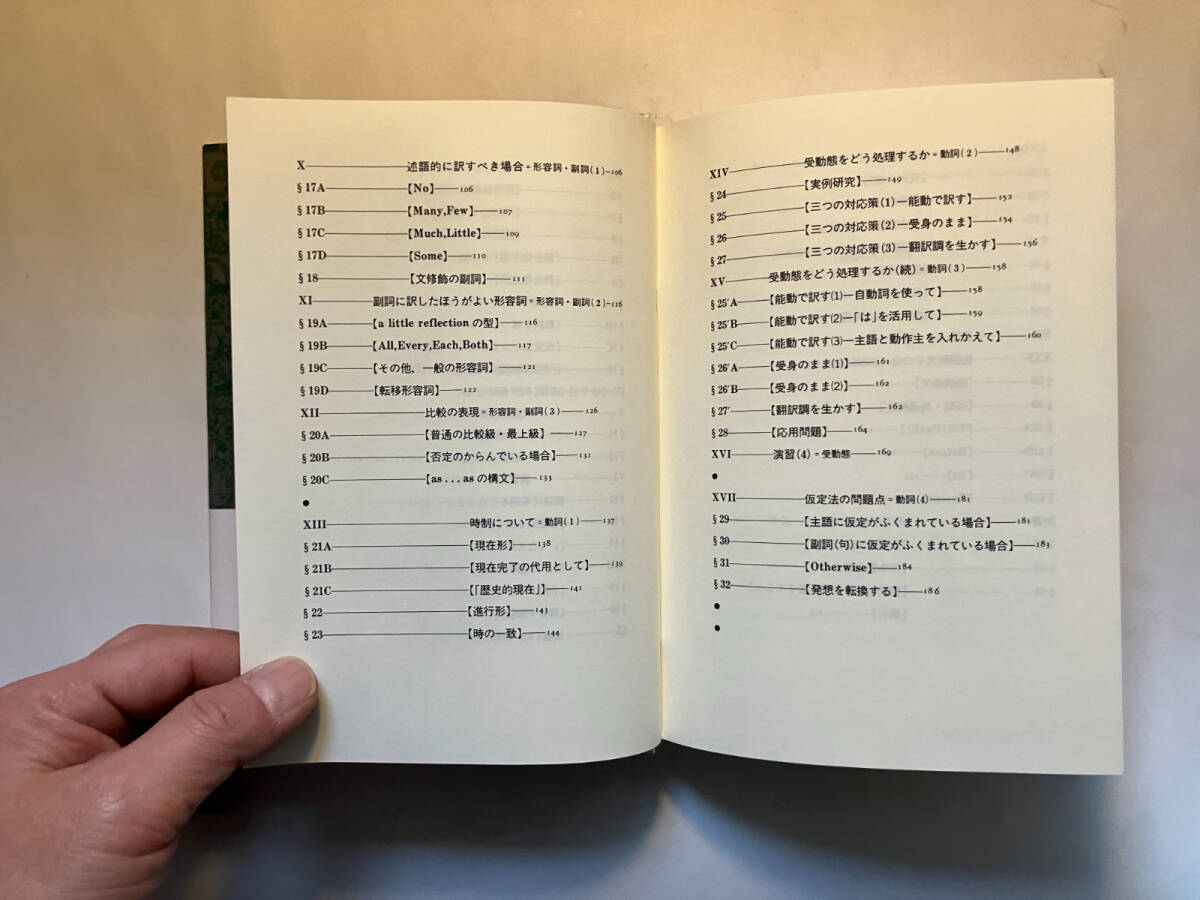 X 述語的に訳すべき場合=形容詞・副詞(1)-106
§17A 【No】—106
§17B 【Many,Few】—107
§17C 【Much,Little】—109
§17D 【Some】—110
§18 【文修飾の副詞】—111
XI 副詞に訳したほうがよい形容詞=形容詞・副詞(2)-116
§19A 【a little reflectionの型】—116
§19B 【All,Every,Each,Both】—117
§19C 【その他，一般の形容詞】—121
§19D 【転移形容詞】—122
XII 比較の表現=形容詞・副詞(3)—126
§20A 【普通の比較級・最上級】—127
§20B 【否定のからんでいる場合】—131
§20C 【as...asの構文】—133
●
XIII 時制について=動詞(1)—137
§21A 【現在形】—138
§21B 【現在完了の代用として】—139
§21C 【「歴史的現在」】—141
§22 【進行形】—143
§23 【時の一致】—144
XIV 受動態をどう処理するか=動詞(2)—148
§24 【実例研究】—149
§25 【三つの対応策(1)—能動で訳す】—152
§26 【三つの対応策(2)—受身のまま】—154
§27 【三つの対応策(3)—翻訳調を生かす】—156
XV 受動態をどう処理するか(続)=動詞(3)—158
§25′A 【能動で訳す(1)—自動詞を使って】—158
§25′B 【能動で訳す(2)—「は」を活用して】—159
§25′C 【能動で訳す(3)—主語と動作主を入れかえて】—160
§26′A 【受身のまま(1)】—161
§26′B 【受身のまま(2)】—162
§27′ 【翻訳調を生かす】—162
§28 【応用問題】—164
XVI 演習(4)=受動態—169
●
XVII 仮定法の問題点=動詞(4)—181
§29 【主語に仮定がふくまれている場合】—181
§30 【副詞(句)に仮定がふくまれている場合】—183
§31 【Otherwise】—184
§32 【発想を転換する】—186
●
●